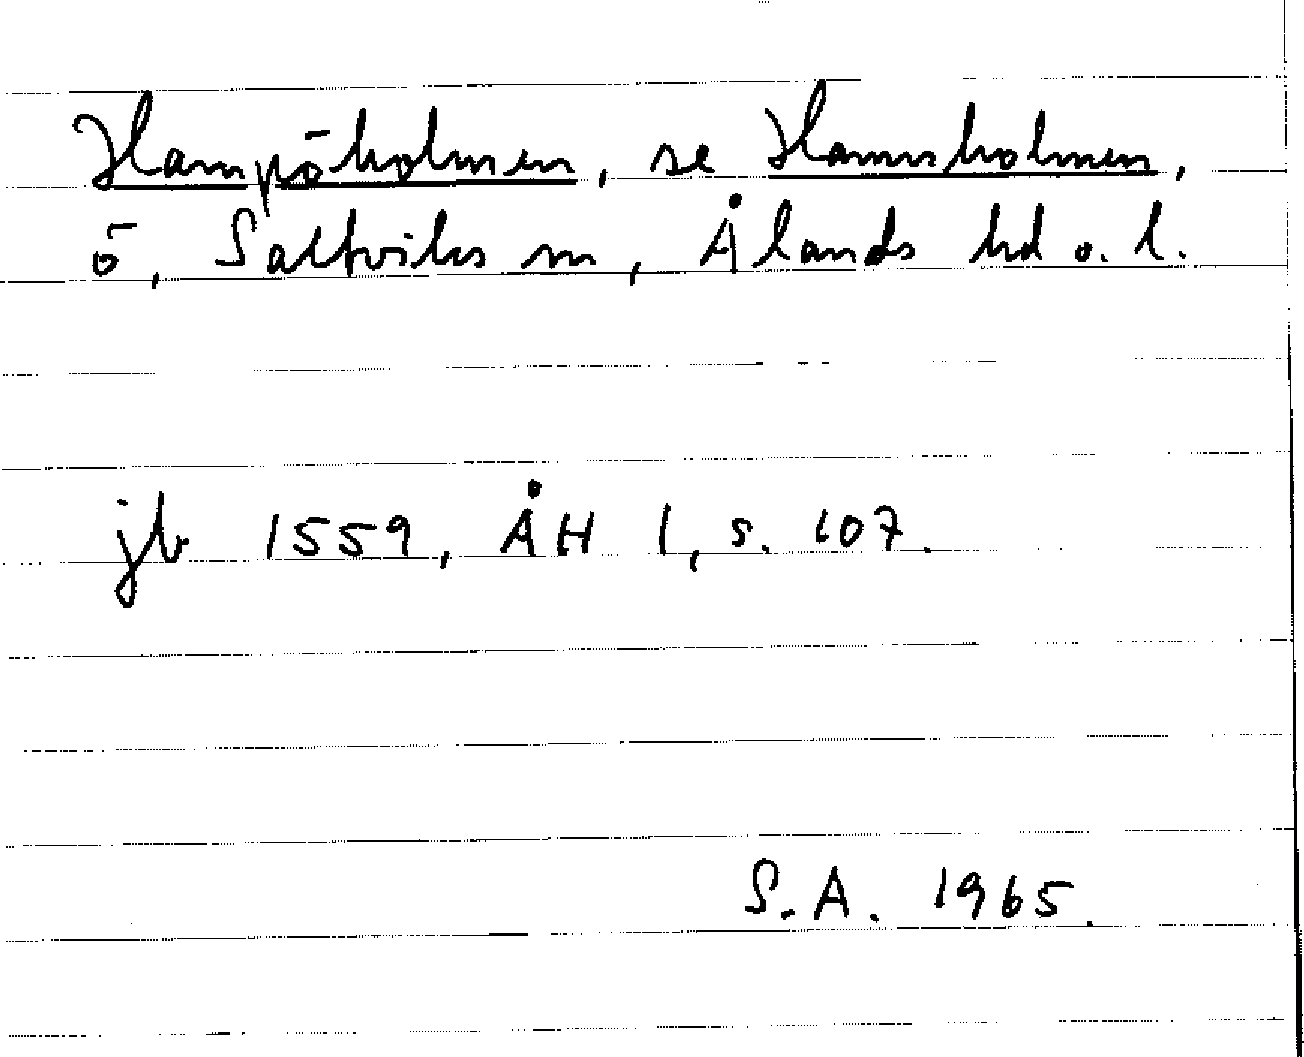 Hampöholmen, se Hamnholmen,
ö, Saltviks sn, Ålands hd o. l.
jb 1559, ÅH 1, s. 107.
S.A. 1965.